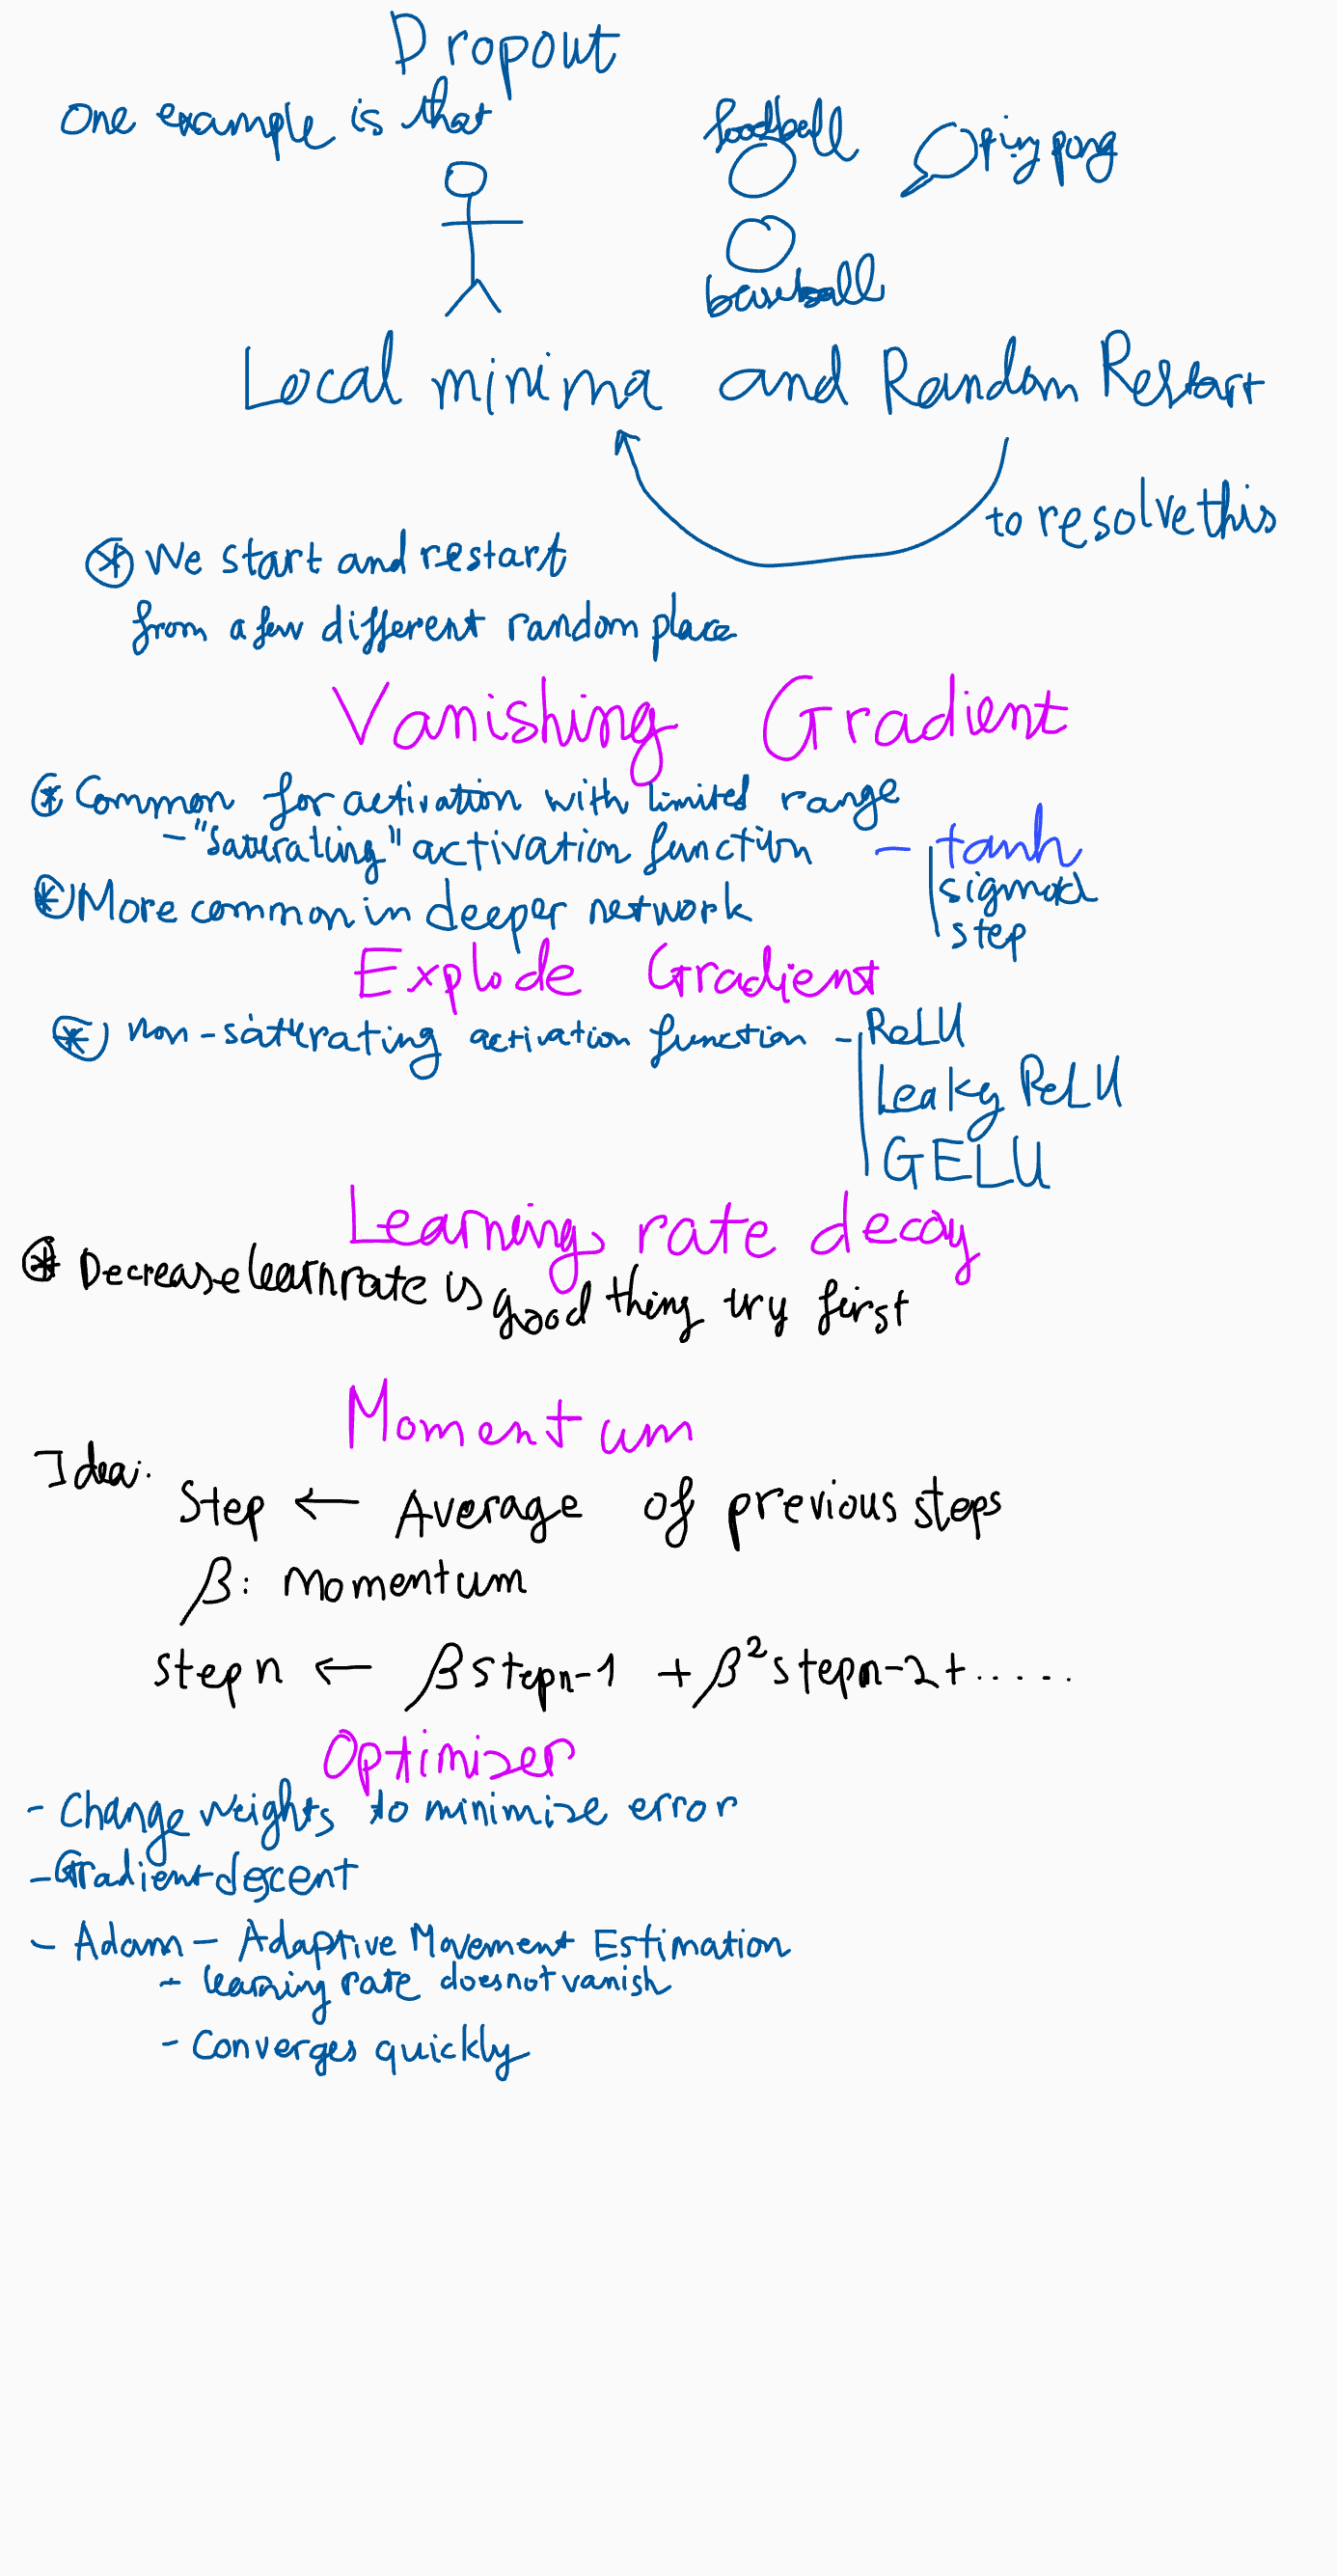 Dropout
One example is that
foodball
ping pong
baseball
Local minima and Random Restart
to resolve this
We start and restart
from a few different random place
Vanishing Gradient
Common for activation with limited range
- "Saturating" activation function - tanh
sigmoid
More common in deeper network
step
Explode Gradient
non-saturating activation function - ReLU
Leaky ReLU
GELU
Learning rate decay
Decrease learn rate is good thing try first
Momentum
Idea:
Step ← Average of previous steps
β: Momentum
step n ← β step n-1 + β² step n-2 + .....
Optimizer
- Change weights to minimize error
- Gradient descent
- Adam - Adaptive Movement Estimation
- learning rate does not vanish
- Converges quickly